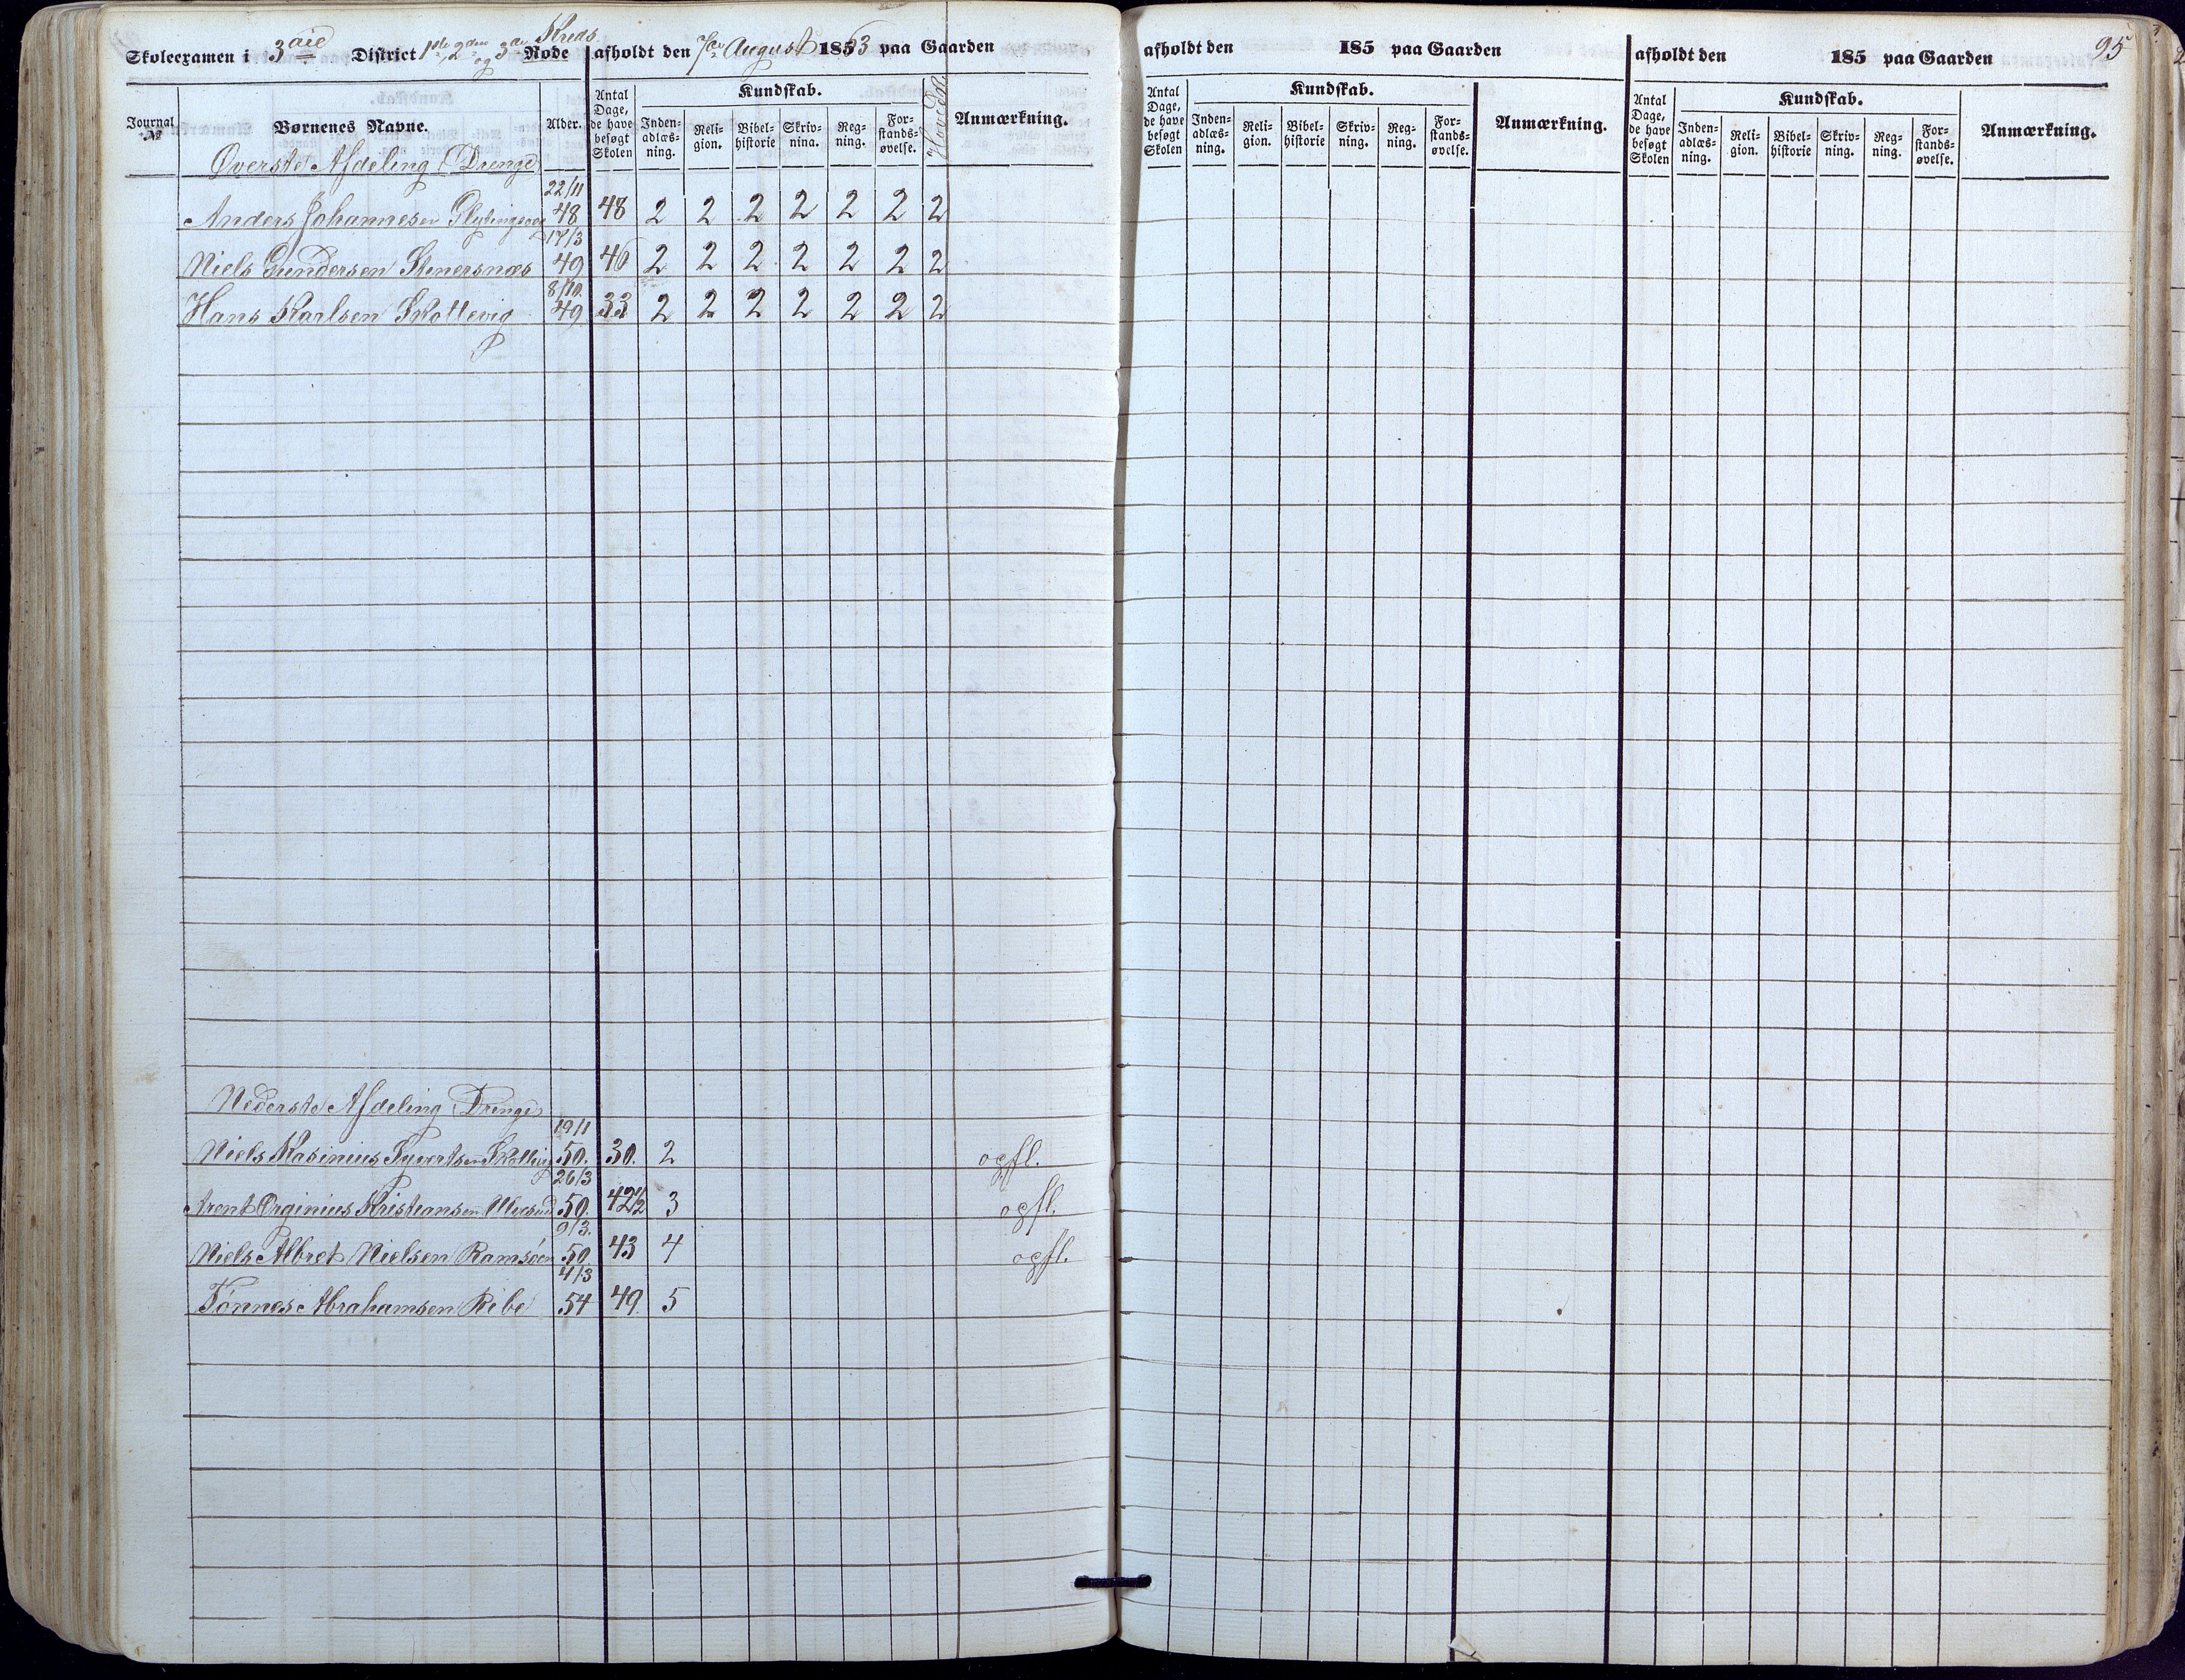 Kreds
Skoleexamen i 3die District 1ste, 2den og 3die Rode afholdt den 7de August 1863 paa Gaarden
Journal № Børnenes Navne. Alder. Antal Dage, de have besøgt Skolen Kundskab. Inden-adlæs-ning. Reli-gion. Bibel-historie Skriv-ning. Reg-ning. For-stands-øvelse. Anmærkning.
Øverste Afdeling Drenge
22/11
Anders Johannesen 48 48 2 2 2 2 2 2 2
17/3
Niels Gundersen Stenersnæs 49 46 2 2 2 2 2 2 2
8/10.
Hans Karlsen Skottevig 49 33 2 2 2 2 2 2 2
Nederste Afdeling Drenge
19/1
Niels Rasinius Syvertsen Skottevig 50. 30. 2 opfl.
26/3
Arent Orginius Kristiansen Ulvesund 50. 42½ 3 opfl.
9/3.
Niels Albret Nielsen Ramsøen 50 43 4 opfl.
4/3
Tønnes Abrahamsen Ribe 54 49. 5
afholdt den 185 paa Gaarden
Antal Dage, de have besøgt Skolen Kundskab. Inden-adlæs-ning. Reli-gion. Bibel-historie Skriv-ning. Reg-ning. For-stands-øvelse. Anmærkning.
afholdt den 185 paa Gaarden 95
Antal Dage, de have besøgt Skolen Kundskab. Inden-adlæs-ning. Reli-gion. Bibel-historie Skriv-ning. Reg-ning. For-stands-øvelse. Anmærkning.